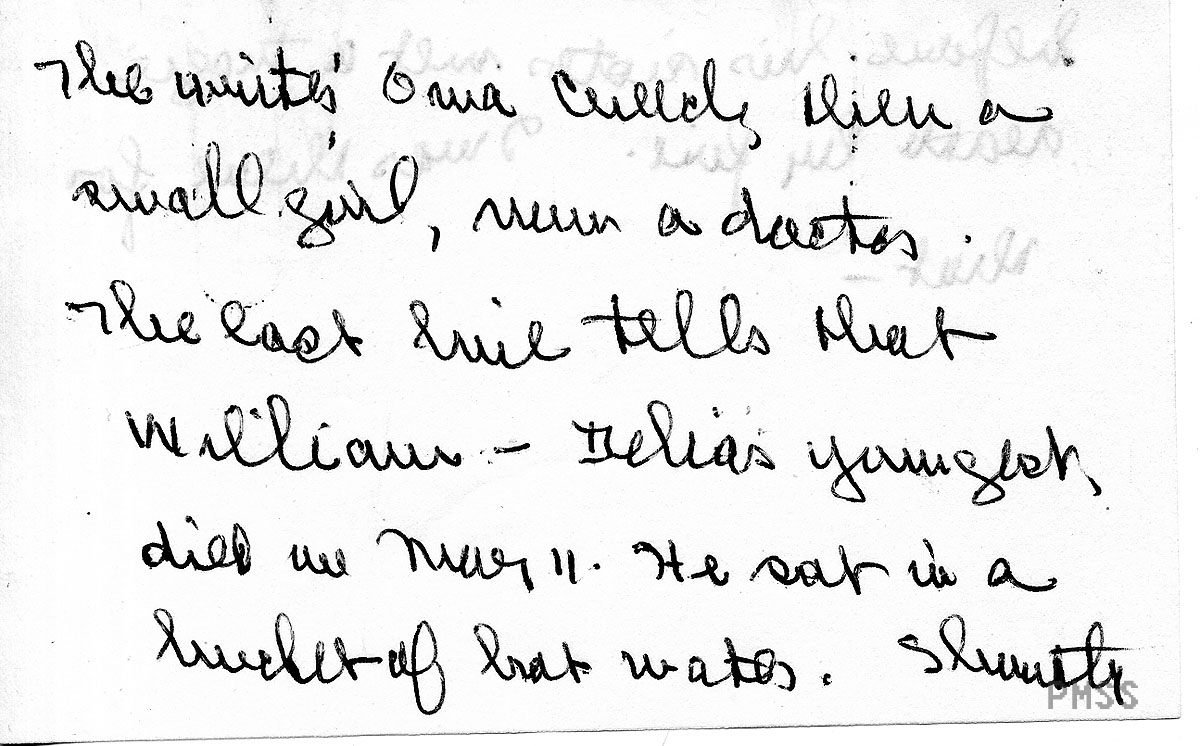 The writer' Oma Creech, then a
small girl, now a doctor.
The last line tells that
William – Delia's youngest,
died on May 11. He sat in a
bucket of hot water. Shortly
PMSS